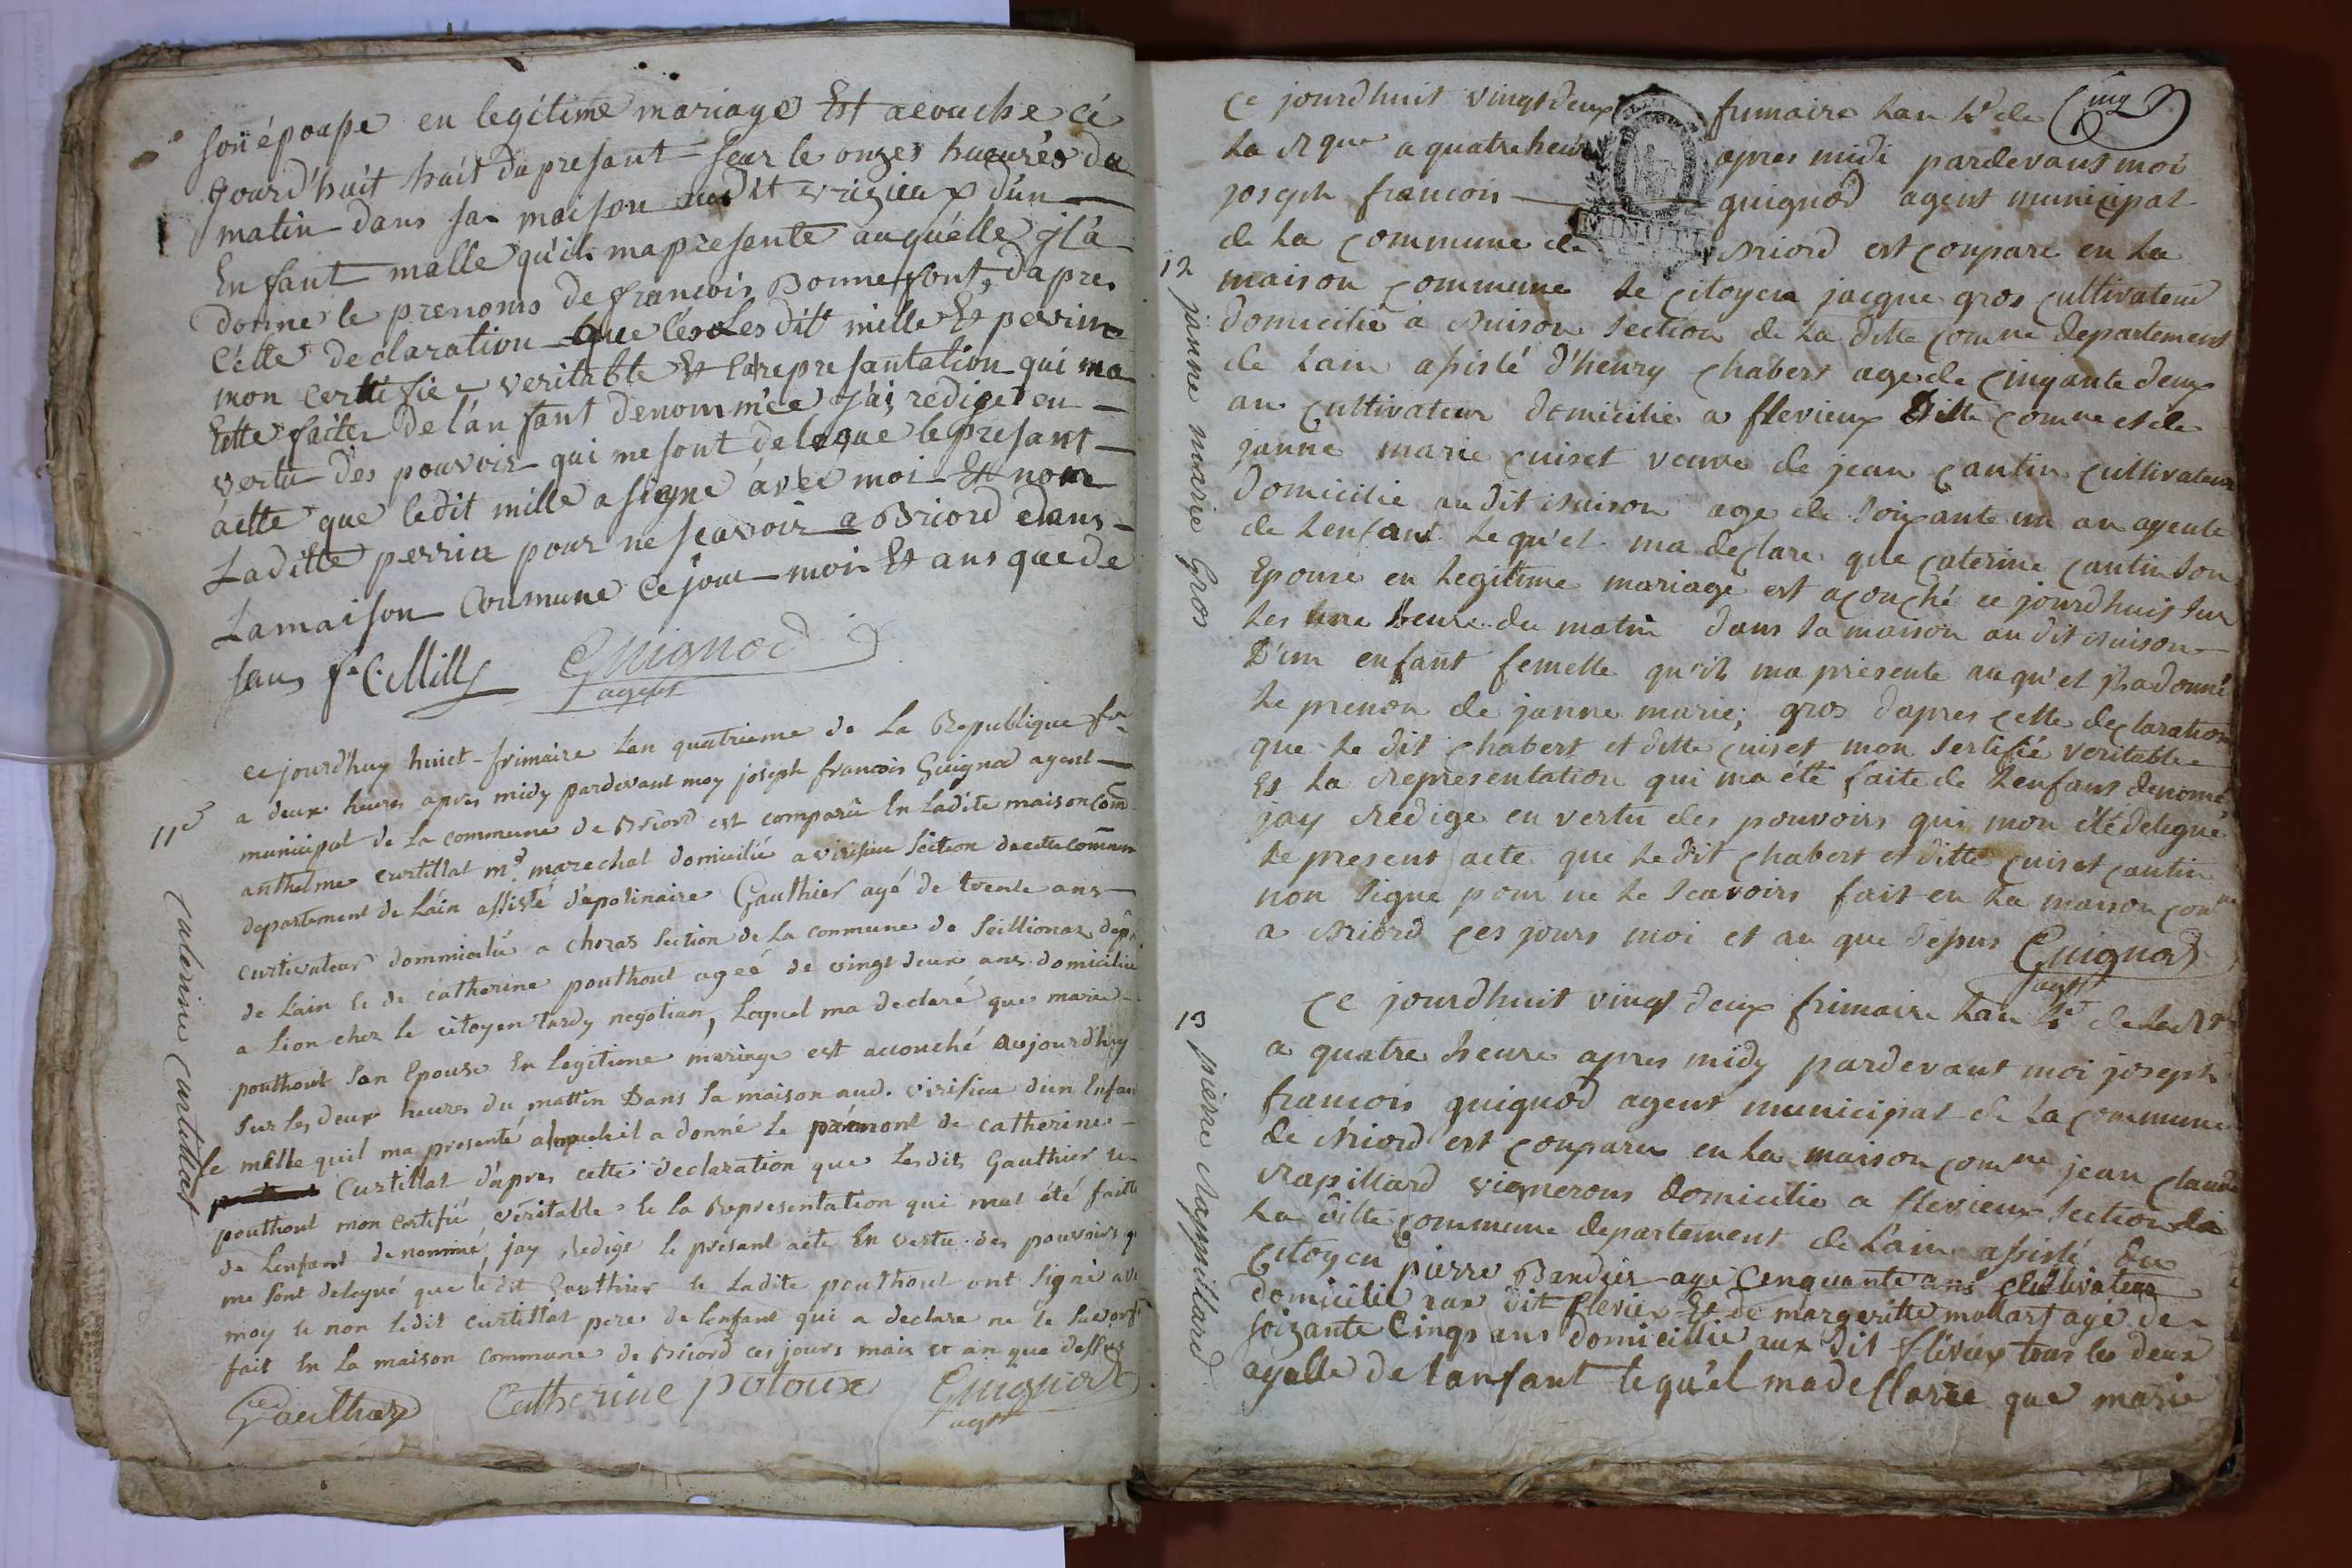 son épouse en legitime mariage Est acouche cé
Jourd'huit huit du presant sur le onzes hueures du
matin dans sa maison audit vrizieux d'un
Enfant malle qu'il ma presente auquelle il a
donné le prenoms de francois Bonnefont, dapres
Cette declaration que les Les dits mille Et perrin
mon certifie veritable Et la representation qui ma
Ette faite de l'anfant denommée j'ai rediget en
vertu des pouvoir qui me sont delegue le presant
actte que ledit mille a signé avec moi Et non
Laditte perrin pour ne scavoir a Briord dans
La maison Commune ce jour moi Et ans que de
sus f. C. Mille Guignod
agent
ce jourd'huy huict frimaire l'an quatrieme de La Republique
a deux heures apres midy pardevant moy joseph francois Guignod agent
11e
municipal de La commune de Briord est comparu En Ladite maison Com
anthelme curtillat md marechal domicilié a virisieu Section de cette commune
departement de Lain assisté d'apolinaire Gauthier agé de trente ans
curtivateur dommicilié a choras Section de La commune de Seillionas dep
de Lain Et de catherine pouthout ageé de vingt deux ans domiciliée
a Lion chez le citoyen tardy negotian, Lequel ma declaré que marie
pouthout son Epouse En Legitime mariage est accouché aujourd'huy
sur les deux heures du mattin Dans sa maison aud. virisieu d'un Enfan
femelle quil ma presenté alaquelle il a donné Le prénont de catherine
Curtillat d'apres cette declaration que Lesdits Gauthier et
pouthout mon certifié véritable et la Representation qui mat été faitte
de Lenfant denommé, jay Redigé le présant acte En vertu des pouvoirs q
me sont delegué que le dit Gauthier et Ladite pouthout ont Signé ave
moy et non ledit curtillat pere de Lenfant qui a declare ne le scavoir
fait En La maison commune de Briord ces jours mois et an que dessus
Gauthier Catherine potoux Guignod
agt
catherine curtillat
Cinq
ce jourdhuit vingt deux frimaire Lan 4e de
La Rque a quatre heure apres midi pardevant moi
joseph francois guignod agent municipal
de La commune de Briord est conpare en La
12
maison commune Le citoyen jacque gros cultivateur
domicilié a Buison section de La ditte comne departement
de Lain asisté d'henry chabert age de cinqante deux
an cultivateur domicilié a flevieux Ditte comne et de
janne marie cuiset veuve de jean cantin cultivateur
domicilié au dit Buison age de soixante un an ayeule
de Lenfant Lequ'el ma declare que caterine cantin son
Epouse en Legitime mariage est acouché ce jourdhuit sur
Les une heure du matin dans sa maison au dit Buison
D'un enfant femelle qu'il ma presente auqu'el il a donné
Le prenon de janne marie; gros dapres cette declaration
que Le dit chabert et ditte cuiset mon sertifié veritable
Et La representation qui ma été faite de Lenfant denomé
jay Redige en vertu des pouvoirs qui mon été delegué
Le present acte que Le dit chabert et ditte cuiset cantin
non signe pour ne Le scavoirs fait en La maison comne
a Briord ces jours moi et an que desus Guignod
agt
janne marie Gros
ce jourdhuit vingt deux frimaire Lan 4e de La Rque
13
a quatre heure apres midy pardevant moi joseph
francois guignod agent municipal de La commune
de Briord est conparu en La maison comne jean claude
Rapillard vignerons domicilie a flevieux section de
La ditte commune departement de Lain assisté du
Citoyen pierre Bandier agé cenquante ans cultivateur
domicilié aux dit flevieux Et de margeritte mollart agé de
soizante Cinqs ans domicillié aux dit fléviex tous les deux
ayulle de Lanfant lequ'el ma declarée que marie
pierre Rappillard